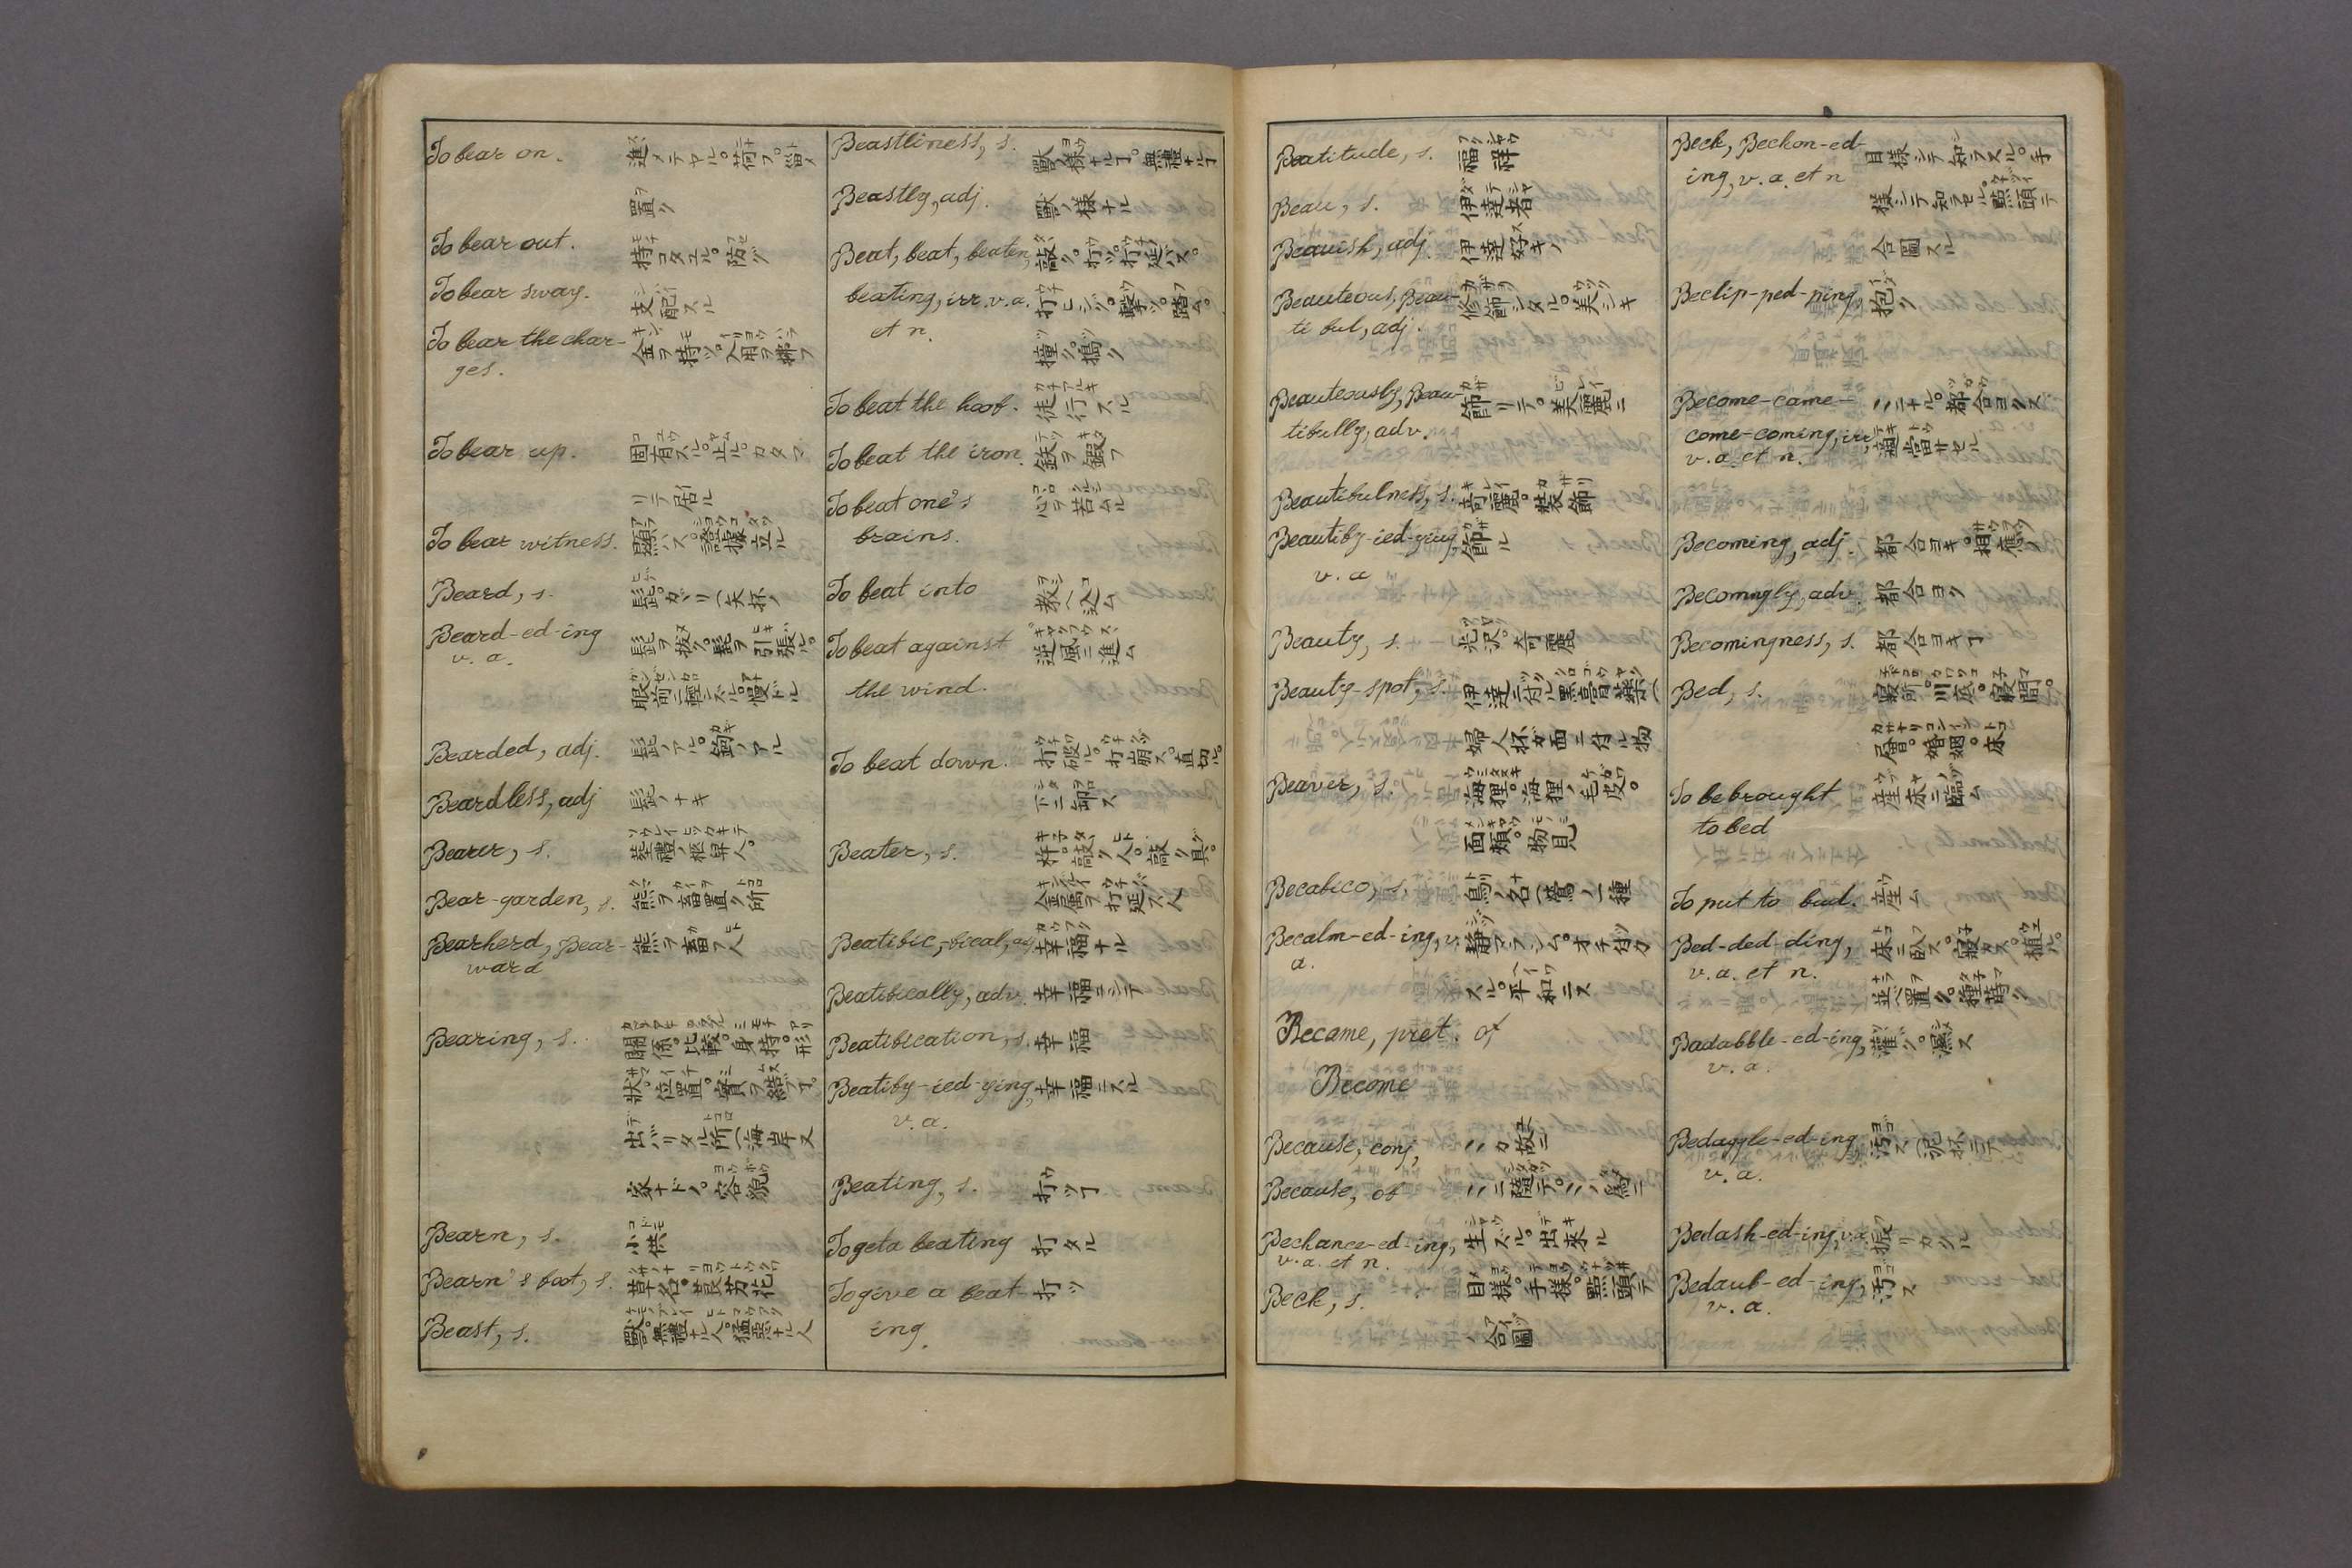 To bear on.
進メテヤル。荷フ。留メ
置ク
To bear out.
持コタエル。防グ
To bear sway.
支配スル
To bear the char-
ges.
金ヲ持ツ。入用ヲ拂フ
To bear up.
固有スル。止ル。カタマ
リテ居ル
To bear witness.
顯ハス。證據立ル
Beard, s.
髭。カバリ(矢杯ノ
Beard-ed-ing
v. a.
髭ヲ拔ク。髭ヲ引張ル。
眼前ニ輕ンズル。慢ドル
Bearded, adj.
髭ノアル。鉤ノアル
Beardless, adj
髭ノナキ
Bearer, s.
葬禮ノ柩舁人。
Bear-garden, s.
熊ヲ畜置ク所
Bearherd, Bear-
ward
熊ヲ畜フ人
Bearing, s.
關係。比較。身持。形
狀。位置。實ヲ結ブヿ。
出バリタル所(海岸又
家ナドノ。容貌
Bearn, s.
小供
Bearn's boot, s.
草名。莨艻花
Beast, s.
獸。無禮ナル人。猛惡ナル人
Beastliness, s.
獸ノ樣ナルヿ。無禮ナルヿ
Beastly, adj.
獸ノ樣ナル
Beat, beat, beaten,
beating, irr. v. a.
et n.
敲ク。打ツ。打延バス。
打ヒシグ。擊ツ。踏ム。
撞ク。搗ク
To beat the hoof.
徒行スル
To beat the iron.
鉄ヲ鍛フ
To beat one's
brains.
心ヲ苦ムル
To beat into
教ヘ込ム
To beat against
the wind.
逆風ニ進ム
To beat down.
打破ル。打崩ス。直切ル。
下ニ卸ス
Beater, s.
杵。敲ク人。敲ク具。
金属ヲ打延ス人
Beatific, -fical, adj
幸福ナル
Beatifically, adv.
幸福ニシテ
Beatification, s.
幸福
Beatify-ied-ying,
v. a.
幸福ニスル
Beating, s.
打ツヿ
To get a beating
打タル
To give a beat-
ing.
打ツ
Beatitude, s.
福祥
Beau, s.
伊達者
Beauish, adj.
伊達好キノ
Beauteous, Beau-
tiful, adj.
修飾シタル。美シキ
Beauteously, Beau-
tifully, adv.
飾リテ。美麗ニ
Beautifulness, s.
奇麗。裝飾
Beautify-ied-ying,
v. a
飾ル
Beauty, s.
光沢。奇麗
Beauty-spot, s.
伊達ニ付ル黑膏藥(
婦人杯ガ面ニ付ル物
Beaver, s.
海狸。海狸ノ毛皮。
面頬。物見
Becafico, s.
鳥ノ名(鶯ノ一種
Becalm-ed-ing, v.
a.
靜マラシム。オチ付カ
スル。平和ニス
Became, pret. of
Become
Because, conj,
〃カ故ニ
Because, of
〃ニ隨テ。〃ノ為ニ
Bechance-ed-ing,
v. a. et n.
生ズル。出來ル
Beck, s.
目樣。手樣。點頭テ
ノ合圖
Beck, Beckon-ed-
ing, v. a. et n
目樣シテ知ラスル。手
樣シテ知ラセル。點頭テ
合圖スル
Beclip-ped-ping,
抱ク
Become-came-
come-coming, irr.
v. a. et n.
〃ニナル。都合ヨクス
適當サセル
Becoming, adj.
都合ヨキ。相應ノ
Becomingly, adv.
都合ヨク
Becomingness, s.
都合ヨキヿ
Bed, s.
寢所。川底。寢間。
層。婚姻。床
To be brought
to bed
産床ニ臨ム
To put to bed.
産ム
Bed-ded-ding,
v. a. et n.
床ニ臥ス。寢カス。植ル。
並ベ置ク。種蒔ク
Badabble-ed-ing,
v. a.
灌グ。濕ス
Bedaggle-ed-ing,
v. a.
汚ス(泥杯ニテ
Bedash-ed-ing, v.a
振リカクル
Bedaub-ed-ing,
v. a.
汚ス